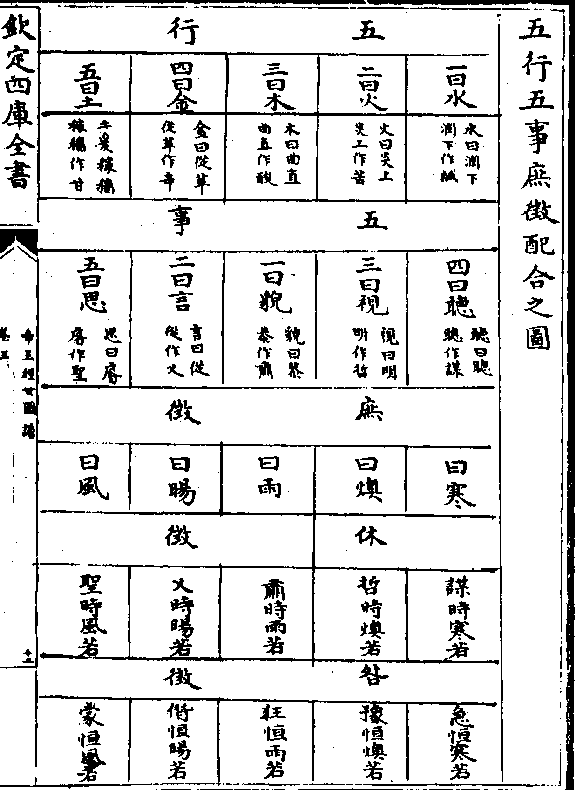 五行五事庶徵配合之圖
五行
一曰水
水曰潤下
潤下作鹹
二曰火
火曰炎上
炎上作苦
三曰木
木曰曲直
曲直作酸
四曰金
金曰從革
從革作辛
五曰土
土爰稼穡
稼穡作甘
五事
四曰聽
聽曰聰
聰作謀
三曰視
視曰明
明作哲
一曰貌
貌曰恭
恭作肅
二曰言
言曰從
從作乂
五曰思
思曰睿
睿作聖
庶徵
曰寒
曰燠
曰雨
曰暘
曰風
休徵
謀時寒若
哲時燠若
肅時雨若
乂時暘若
聖時風若
咎徵
急恒寒若
豫恒燠若
狂恒雨若
僭恒暘若
蒙恒風若
欽定四庫全書
帝王經世圖譜